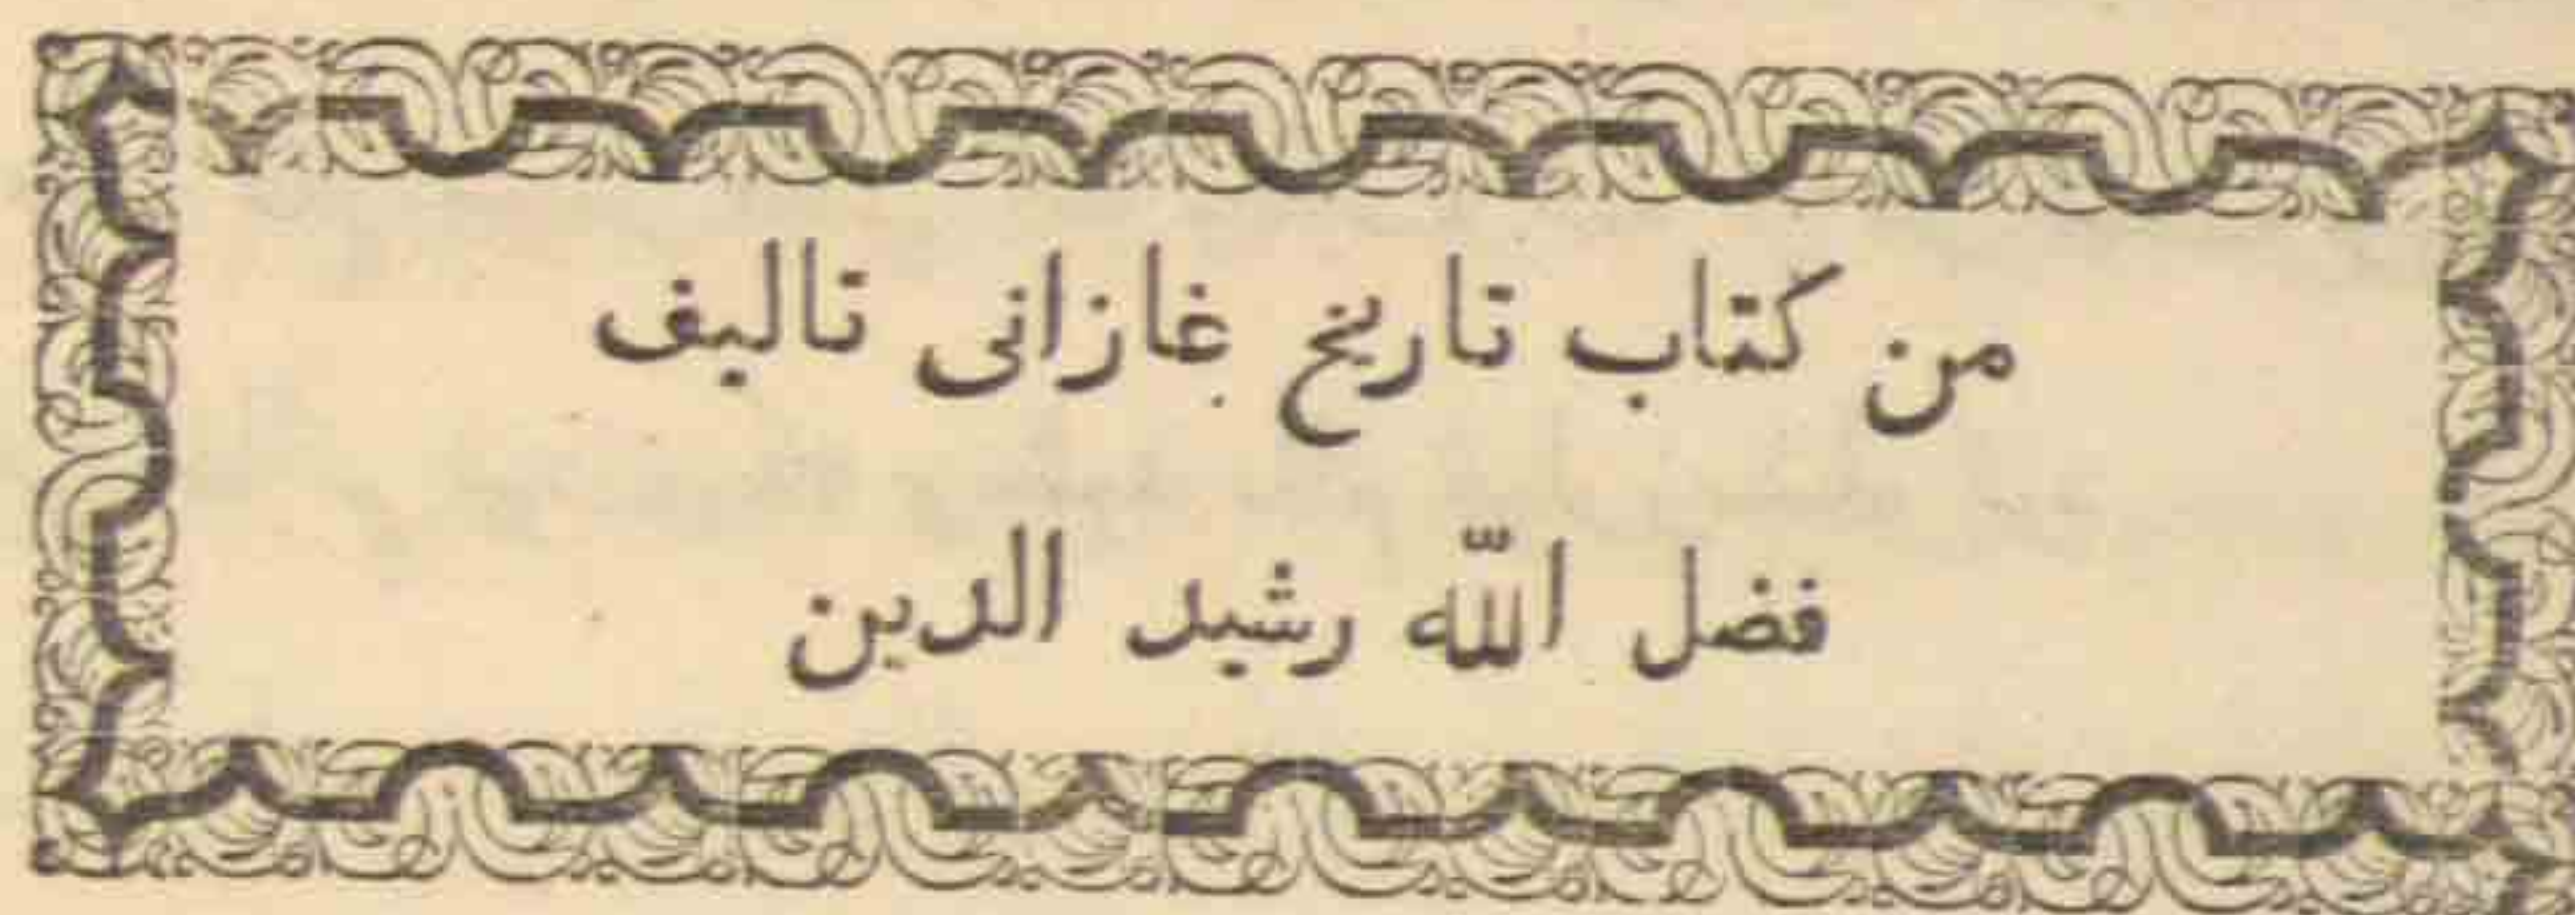 من كتاب تاريخ غازانى تاليف
فضل اللّه رشيد الدين